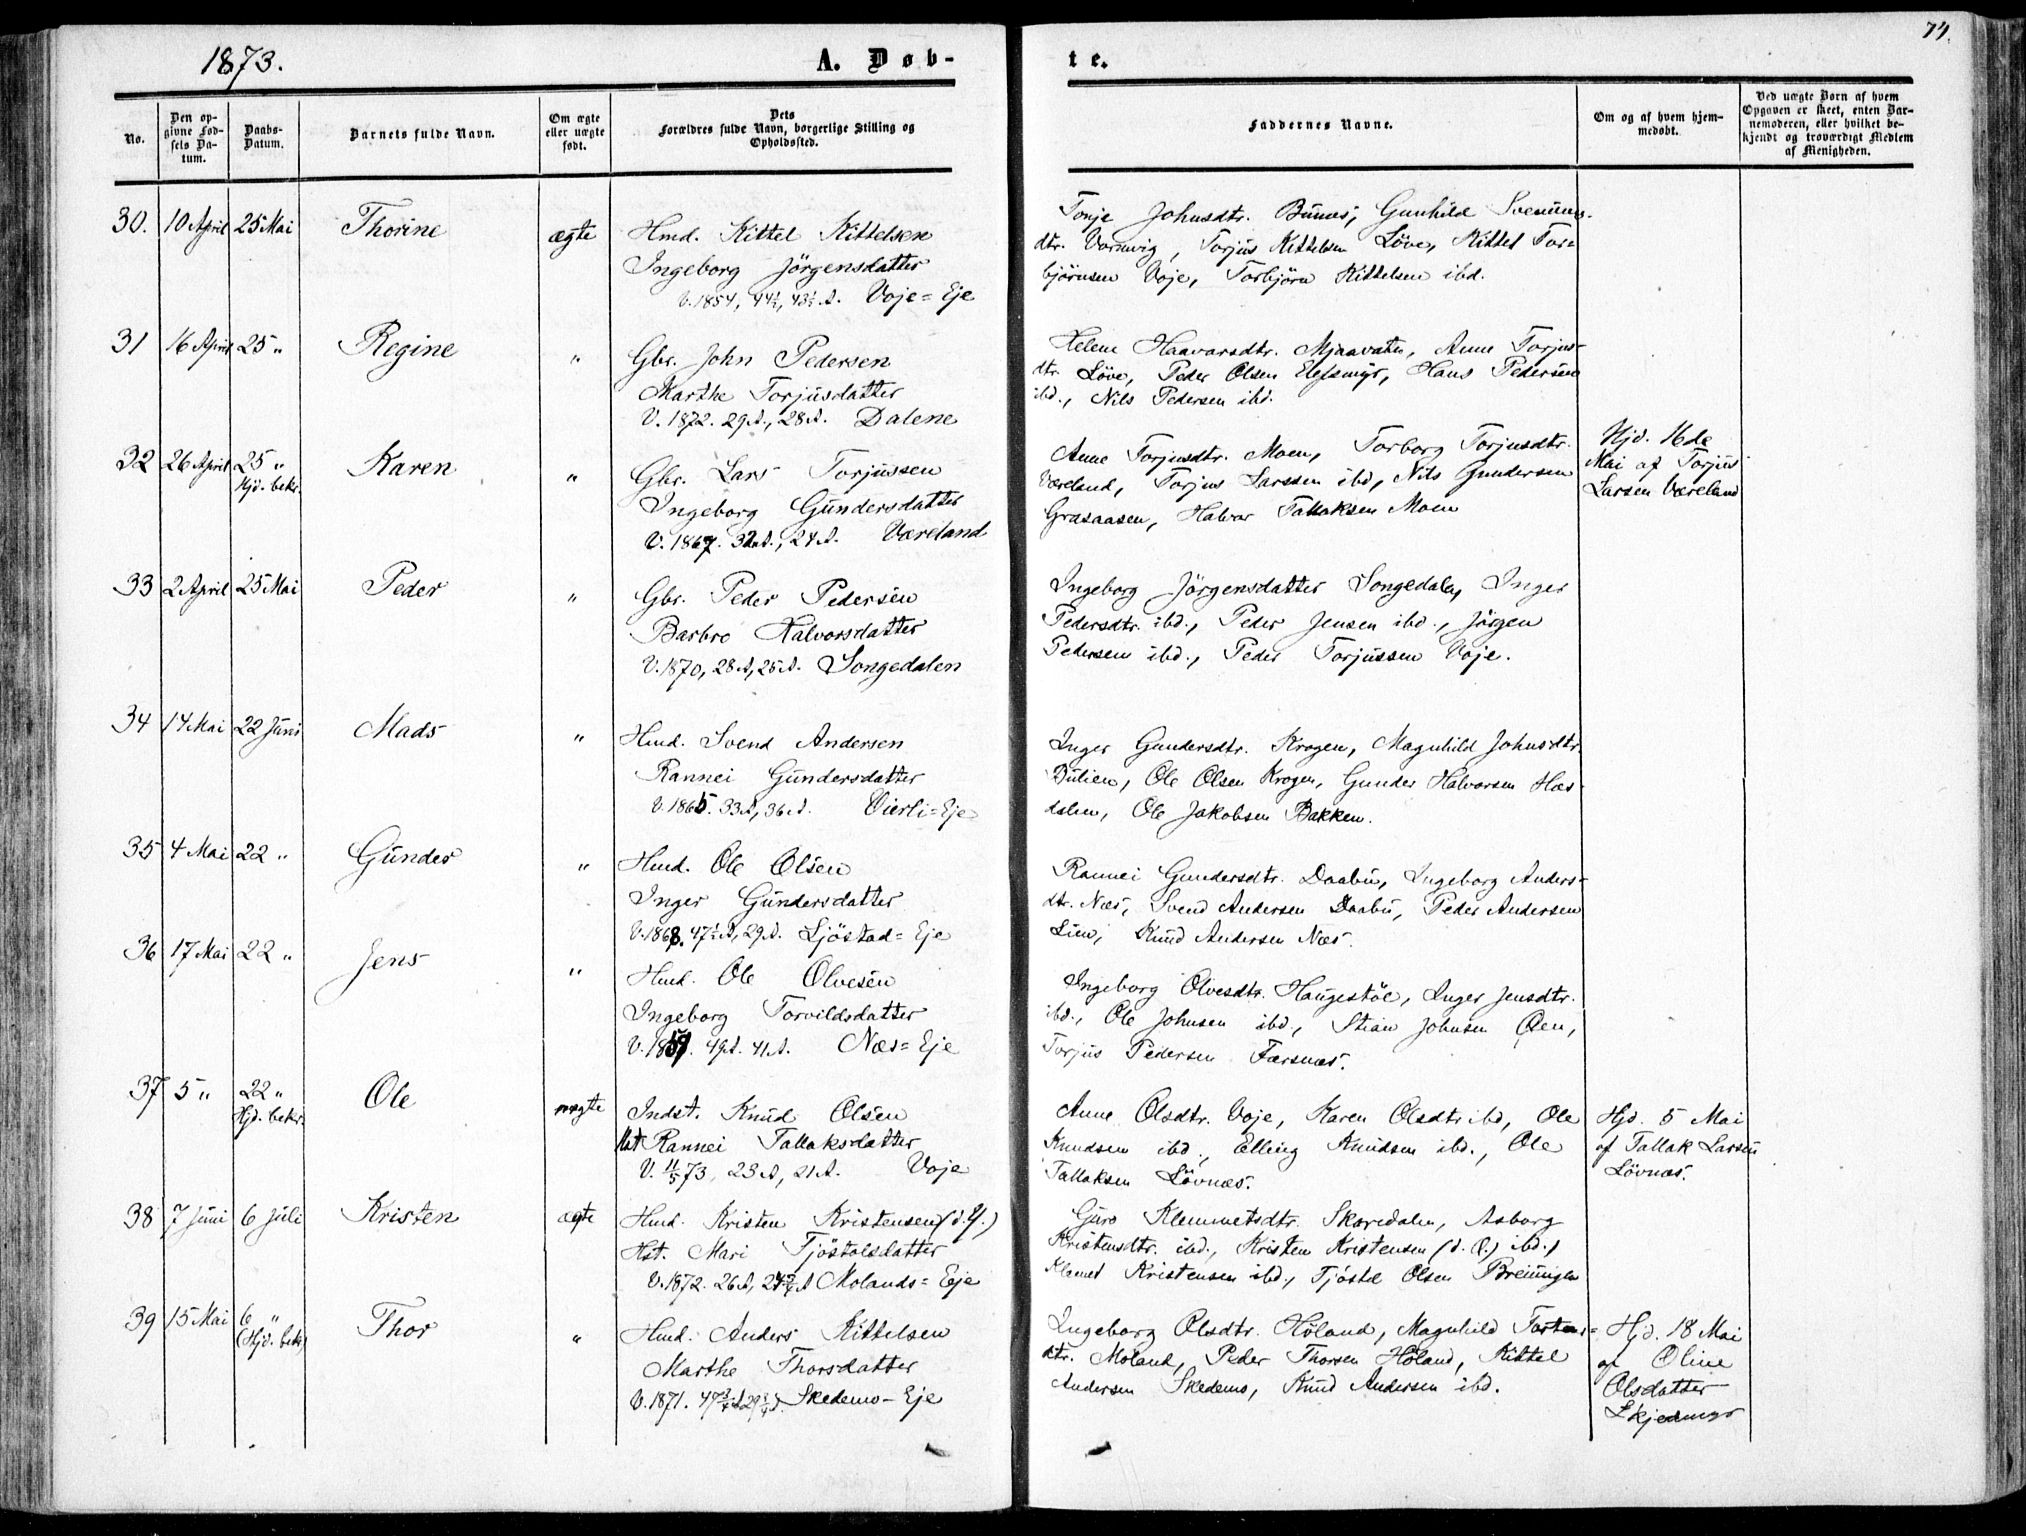 1873.
A. Døb-
te.
74.
No.
Den op-
givne Fød-
sels Da-
tum.
Daabs-
Datum.
Barnets fulde Navn.
Om ægte
eller uægte
født.
Dets
Forældres fulde Navn, borgerlige Stilling og
Opholdssted.
Faddernes Navne.
Om og af hvem hjem-
medøbt.
Ved uægte Børn af hvem
Opgaven er skeet, enten Bar-
nemoderen, eller hvilket be-
kjendt og troværdigt Medlem
af Menigheden.
30. 10 April 25 Mai Thorine ægte Hmd. Kittel Kittelsen
Ingeborg Jörgensdatter
V. 1854, 44½, 43½ A. Voje=Eje
Tonje Johnsdtr. Bunes, Gunhild Svenums-
dtr. Vormvig, Torjus Kittelsen Löve, Kittel Tor=
björnsen Voje, Torbjörn Kittelsen ibd.
31 16 April 25 " Regine " Gbr. John Pedersen
Marthe Torjusdatter
V. 1872. 29 A., 28 A. Dalene
Helene Haavorsdtr. Mjaavatn, Anne Torjus-
dtr. Löve, Peder Olsen Elefsmyr, Hans Pedersen
ibd., Nils Pedersen ibd.
32 26 April 25 " Karen " Gbr. Lars Torjussen
Hjd. bekr.
Ingeborg Gundersdatter
V. 1867. 32 A., 24 A. Væreland
Anne Torjusdtr. Moen, Torborg Torjusdtr.
Væreland, Torjus Larssen ibd, Nils Gundersen
Grasaasen, Halvor Tallaksen Moen
Hjd. 16de
Mai af Torjus
Larsen Væreland
33 2 April 25 Mai Peder " Gbr. Peder Pedersen
Barbro Halvorsdatter
V. 1870, 28 A, 25 A. Songedalen
Ingeborg Jörgensdatter Songedalen, Inger
Pedersdtr. ibd., Peder Jensen ibd., Jörgen
Pedersen ibd., Peder Torjussen Voje.
34 14 Mai 22 Juni Mads " Hmd. Svend Andersen
Rannei Gundersdatter
V. 1865. 33 A, 36 A. Vierli=Eje
Inger Gundersdtr. Krogen, Magnhild Johnsdtr
Dulien, Ole Olsen Krogen, Gunder Halvorsen Hæs-
dalen, Ole Jakobsen Bakken.
35 4 Mai 22 " Gunder " Hmd. Ole Olsen
Inger Gundersdatter
V. 1868. 47½ A, 29 A. Ljöstad=Eje
Rannei Gundersdtr. Daabu, Ingeborg Anders-
dtr. Næs, Svend Andersen Daabu, Peder Andersen
Lien, Knud Andersen Næs.
36 17 Mai 22 " Jens " Hmd. Ole Olvesen
Ingeborg Torvildsdatter
V. 1859. 49 A. 41 A. Næs=Eje
Ingeborg Olvesdtr. Haugestöl, Inger Jensdtr.
ibd., Ole Johnsen ibd., Stian Johnsen Öen,
Torjus Pedersen Færsnæs.
37 5 " 22 " Ole uægte Indst. Knud Olsen
Hjd. bekr.
Hst. Rannei Tallaksdatter
V. 11/5 73, 23 A, 21 A. Voje
Anne Olsdtr. Voje, Karen Olsdtr ibd, Ole
Knudsen ibd., Elling Knudsen ibd., Ole
Tallaksen Lövnæs.
Hjd. 5 Mai
af Tallak Larsen
Lövnæs.
38 7 Juni 6 Juli Kristen ægte Hmd. Kristen Kristensen (d. Y.)
Hst. Mari Tjöstolsdatter
V. 1872. 26 A, Molands=Eje
Guro Klemmetsdtr. Skoredalen, Asborg
Kristensdtr. ibd., Kristen Kristensen (d. Æ.) ibd.,
Klemet Kristensen ibd., Tjöstel Olsen Breiungen
39 15 Mai 6 " Thor " Hmd. Anders Kittelsen
(Hjd. bekr)
Marthe Thorsdatter
V. 1871. 47¾ A 29¾ A. Skedemo-Eje
Ingeborg Olsdtr. Höland, Magnhild Torten=
dtr. Moland, Peder Thorsen Höland, Kittel
Andersen Skedemo, Knud Andersen ibd.
Hjd. 18 Mai
af Oline
Olsdatter
Skjedmyr